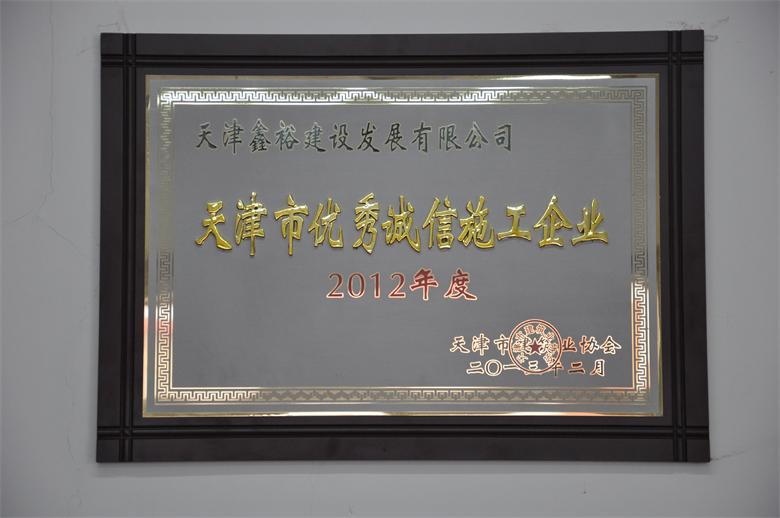 天津鑫裕建设发展有限公司
天津市优秀诚信施工企业
2012年度
天津市建筑业协会
二〇一三年二月